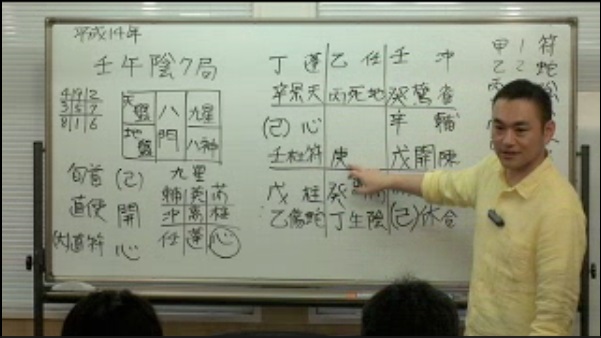 平成14年
壬午陰7局
4 9 2
3 5 7
8 1 6
天盤 八門 九星
地盤 八神
旬首 (己)
直使 開
(大)直符 心
九星
輔 英 芮
冲 禽 柱
任 蓬 心
丁 蓬 乙 任 壬 冲
辛 景 天 丙 死 地 癸 驚 雀
(己) 心 辛 輔
壬 杜 符 庚 戊 開 陳
戊 柱 癸
乙 傷 蛇 丁 生 陰 (己) 休 合
甲 1 符
乙 2 蛇
丙